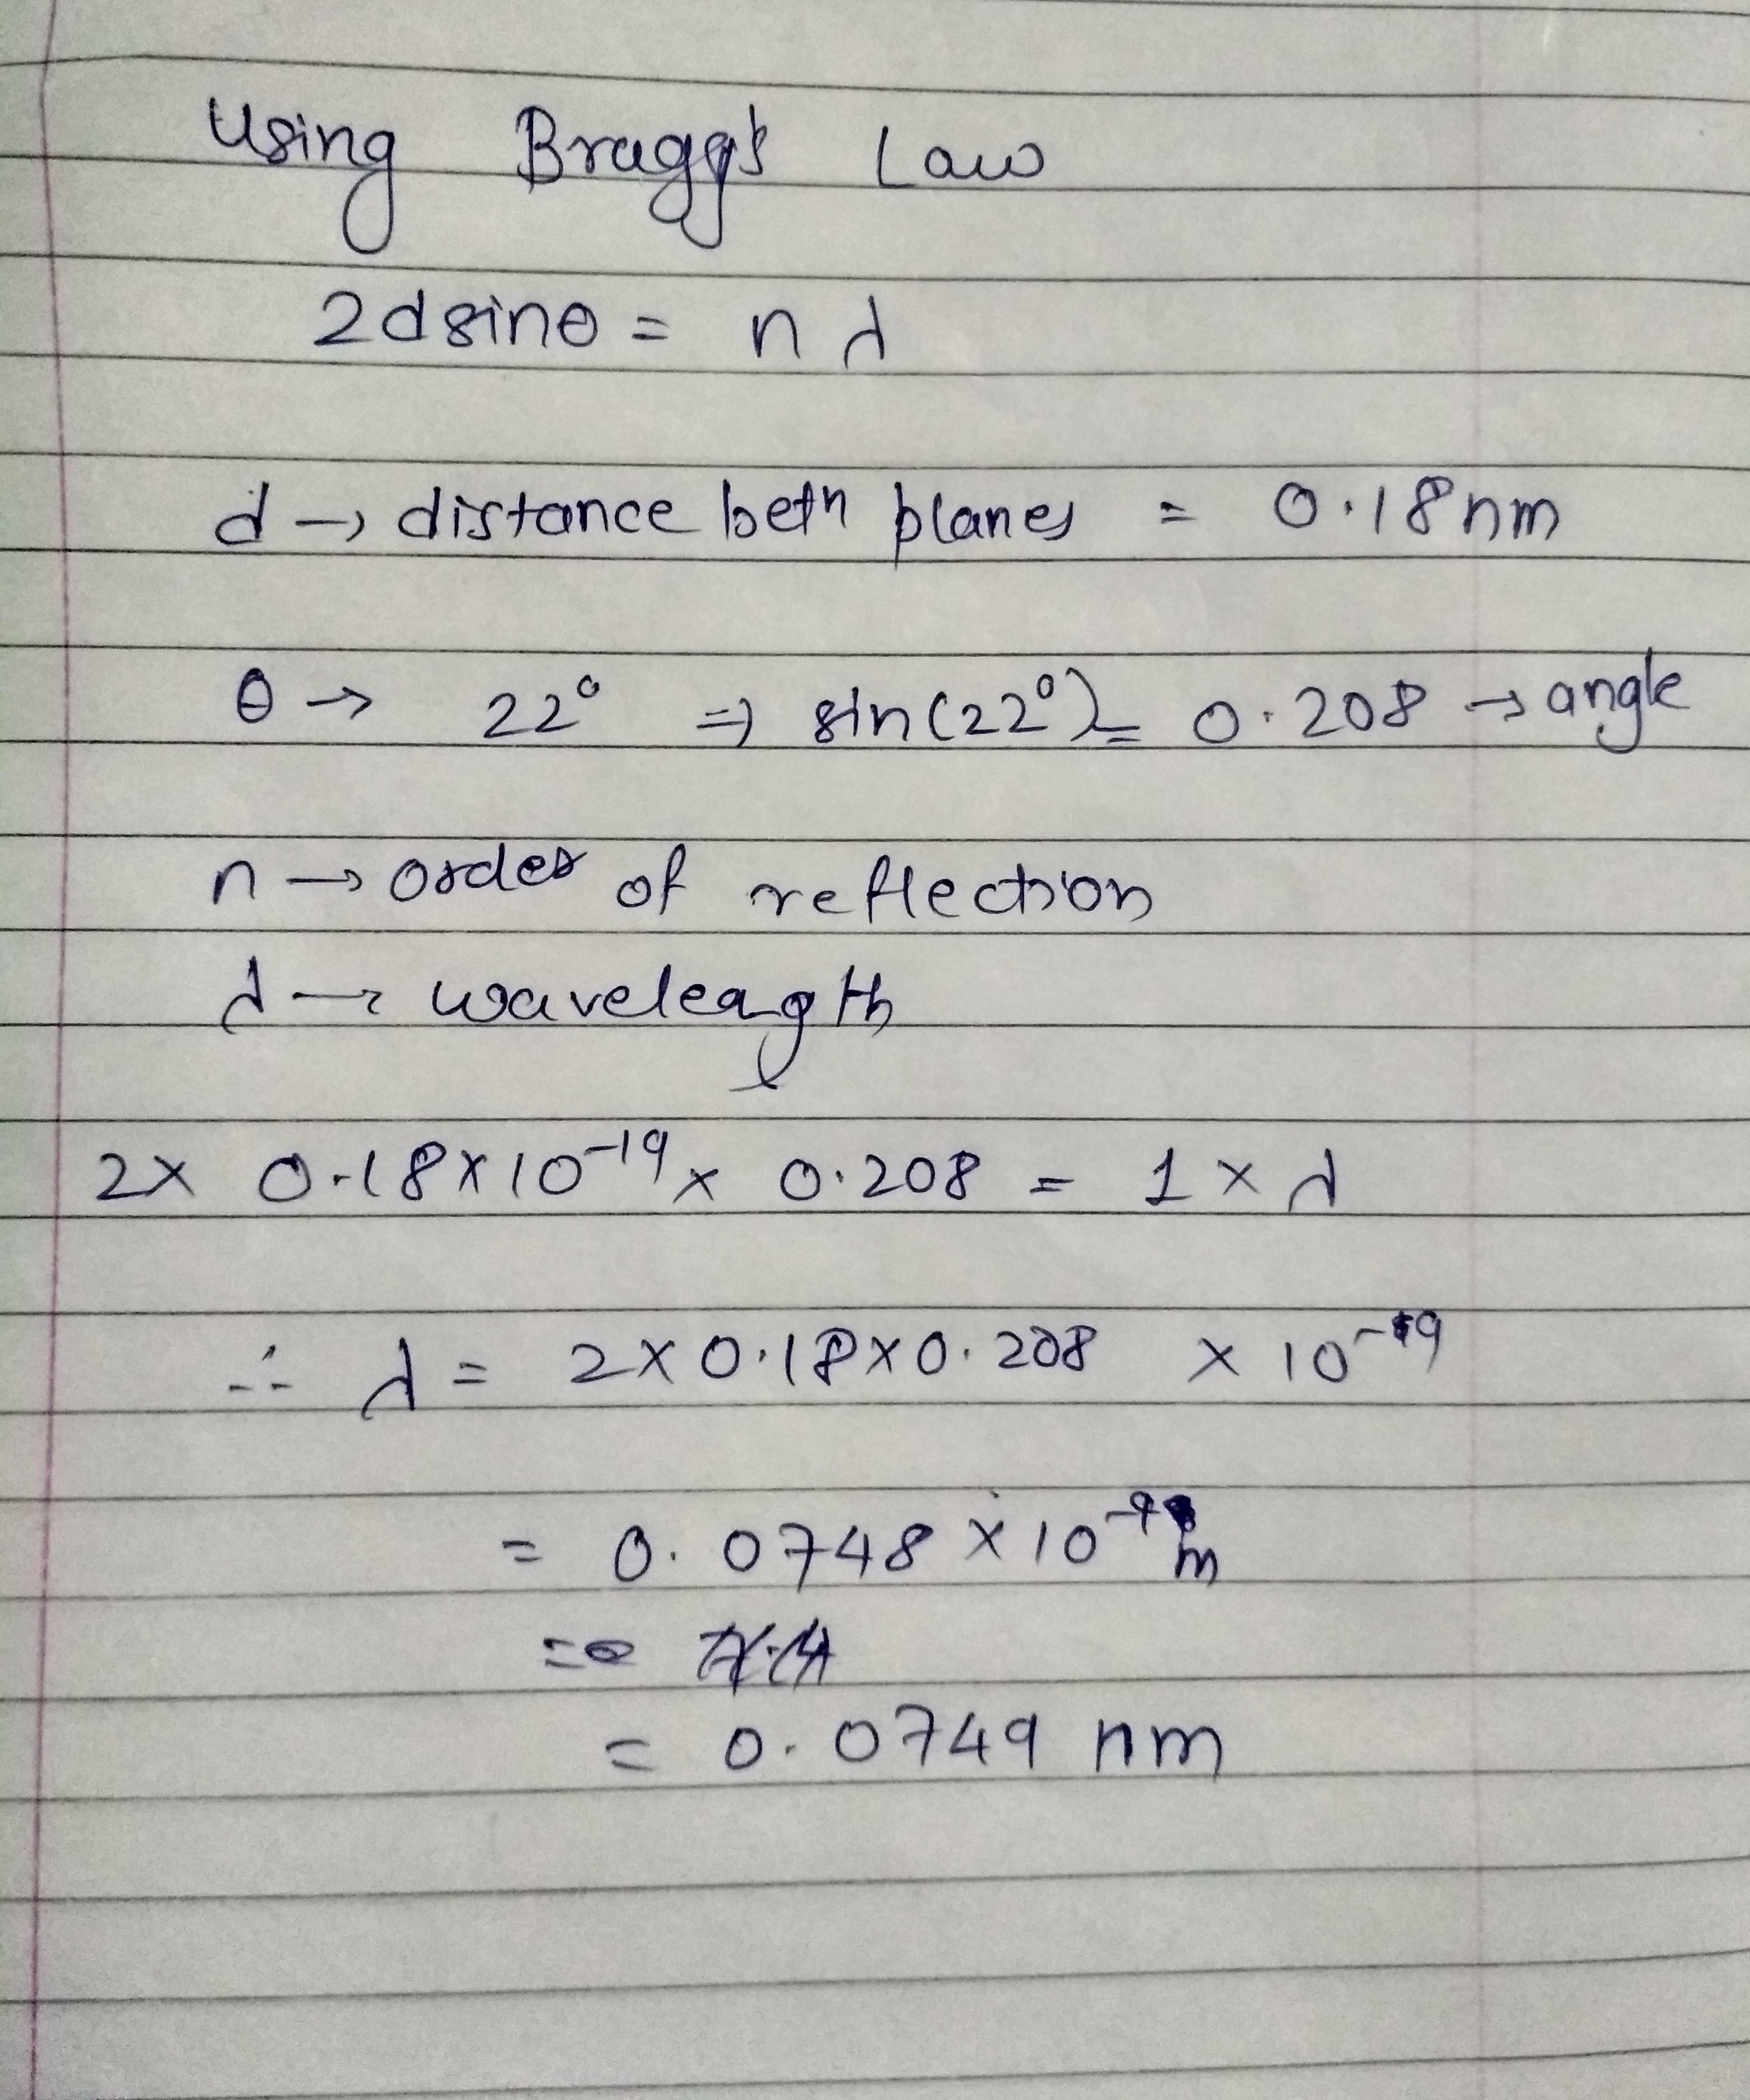 Using Bragg's Law
2dsinθ = nλ
d → distance betn planes = 0.18nm
θ → 22° ⇒ sin(22°) = 0.208 → angle
n → order of reflection
λ → wavelength
2× 0.18×10⁻¹⁹ × 0.208 = 1×λ
∴ λ = 2×0.18×0.208 × 10⁻⁹
= 0.0748 × 10⁻⁹ m
=
= 0.0749 nm